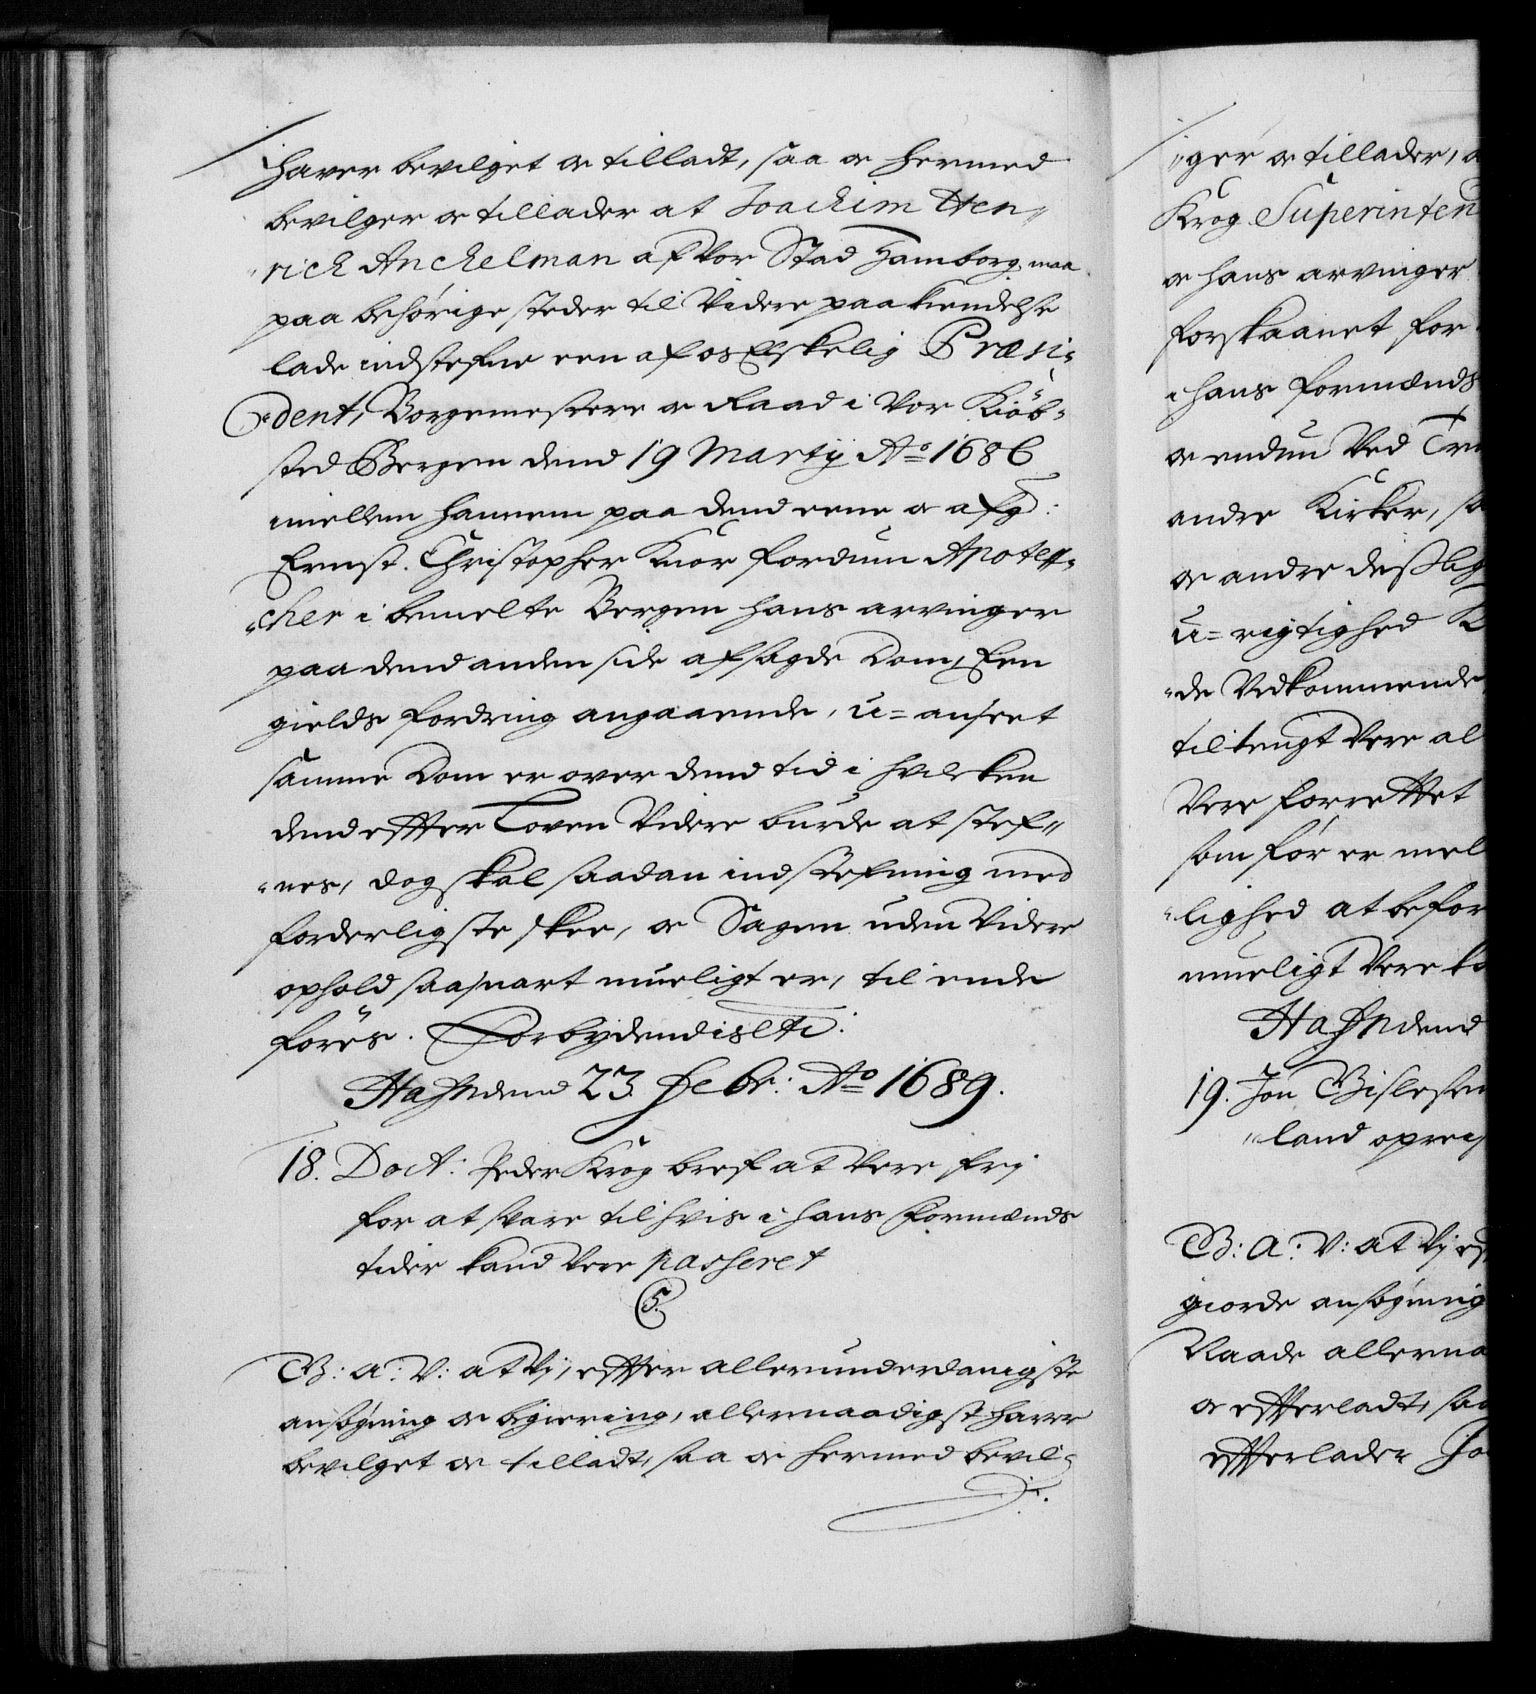 hafver bevilget oc tilladt, saa oc hermed
bevilger oc tillader at Joachim Hen„
„rich Anckelman af Vor Stad Hamborg, maa
paa behørige steder til Videre paakiendelse
lade indstefne een af os Elskelig Præsi„
„dent, Borgemestere oc Raad i Vor Kiøb„
sted Bergen dend 19 Martij Aō 1686
imellem hannem paa dend eene oc afg:
Ernst Christopher Knor fordum Apotec„
„cher i bemelte Bergen hans arvinger
paa dend anden side afsagde Dom, Een
gields fordring angaaende, u=anseet
samme Dom er over dend tid i hvilcken
dend effter Loven Videre burde at stef„
„nes, dog skal saadan indstefning med
forderligste skee, oc Sagen uden Videre
ophold saasnart mueligt er, til ende
føres. Forbydendis etc:
Hafn dend 23. Febr: Aō 1689.
18. Doct: Peder Krog bref at Vere frj
for at svare til hvis i hans Formænds
tider kand Vere passeret
C5.
G: A: V: at Vj, effter allerunderdanigste
ansøgning oc begiering, allernaadigst hafver
bevilget oc tilladt, saa oc hermed bevil„
„ger oc tillader, a
Krog Superinten
oc hans arvinger
forskaanet for
i hans formænds
oc enden Ved
andre Kirker, sa
oc andre desslig
u=rigtighed
„de Vedkommende
tiltengt Vere al
Vere forrettet
som før er mel
„lighed at befor
mueligt Vere ka
Hafn dend
19. Jon Gislesen
„land opreis
G: A: V: at Vj ef
giorde ansøgning
Raade allerna
oc effterladt, saa
effterlader Jo